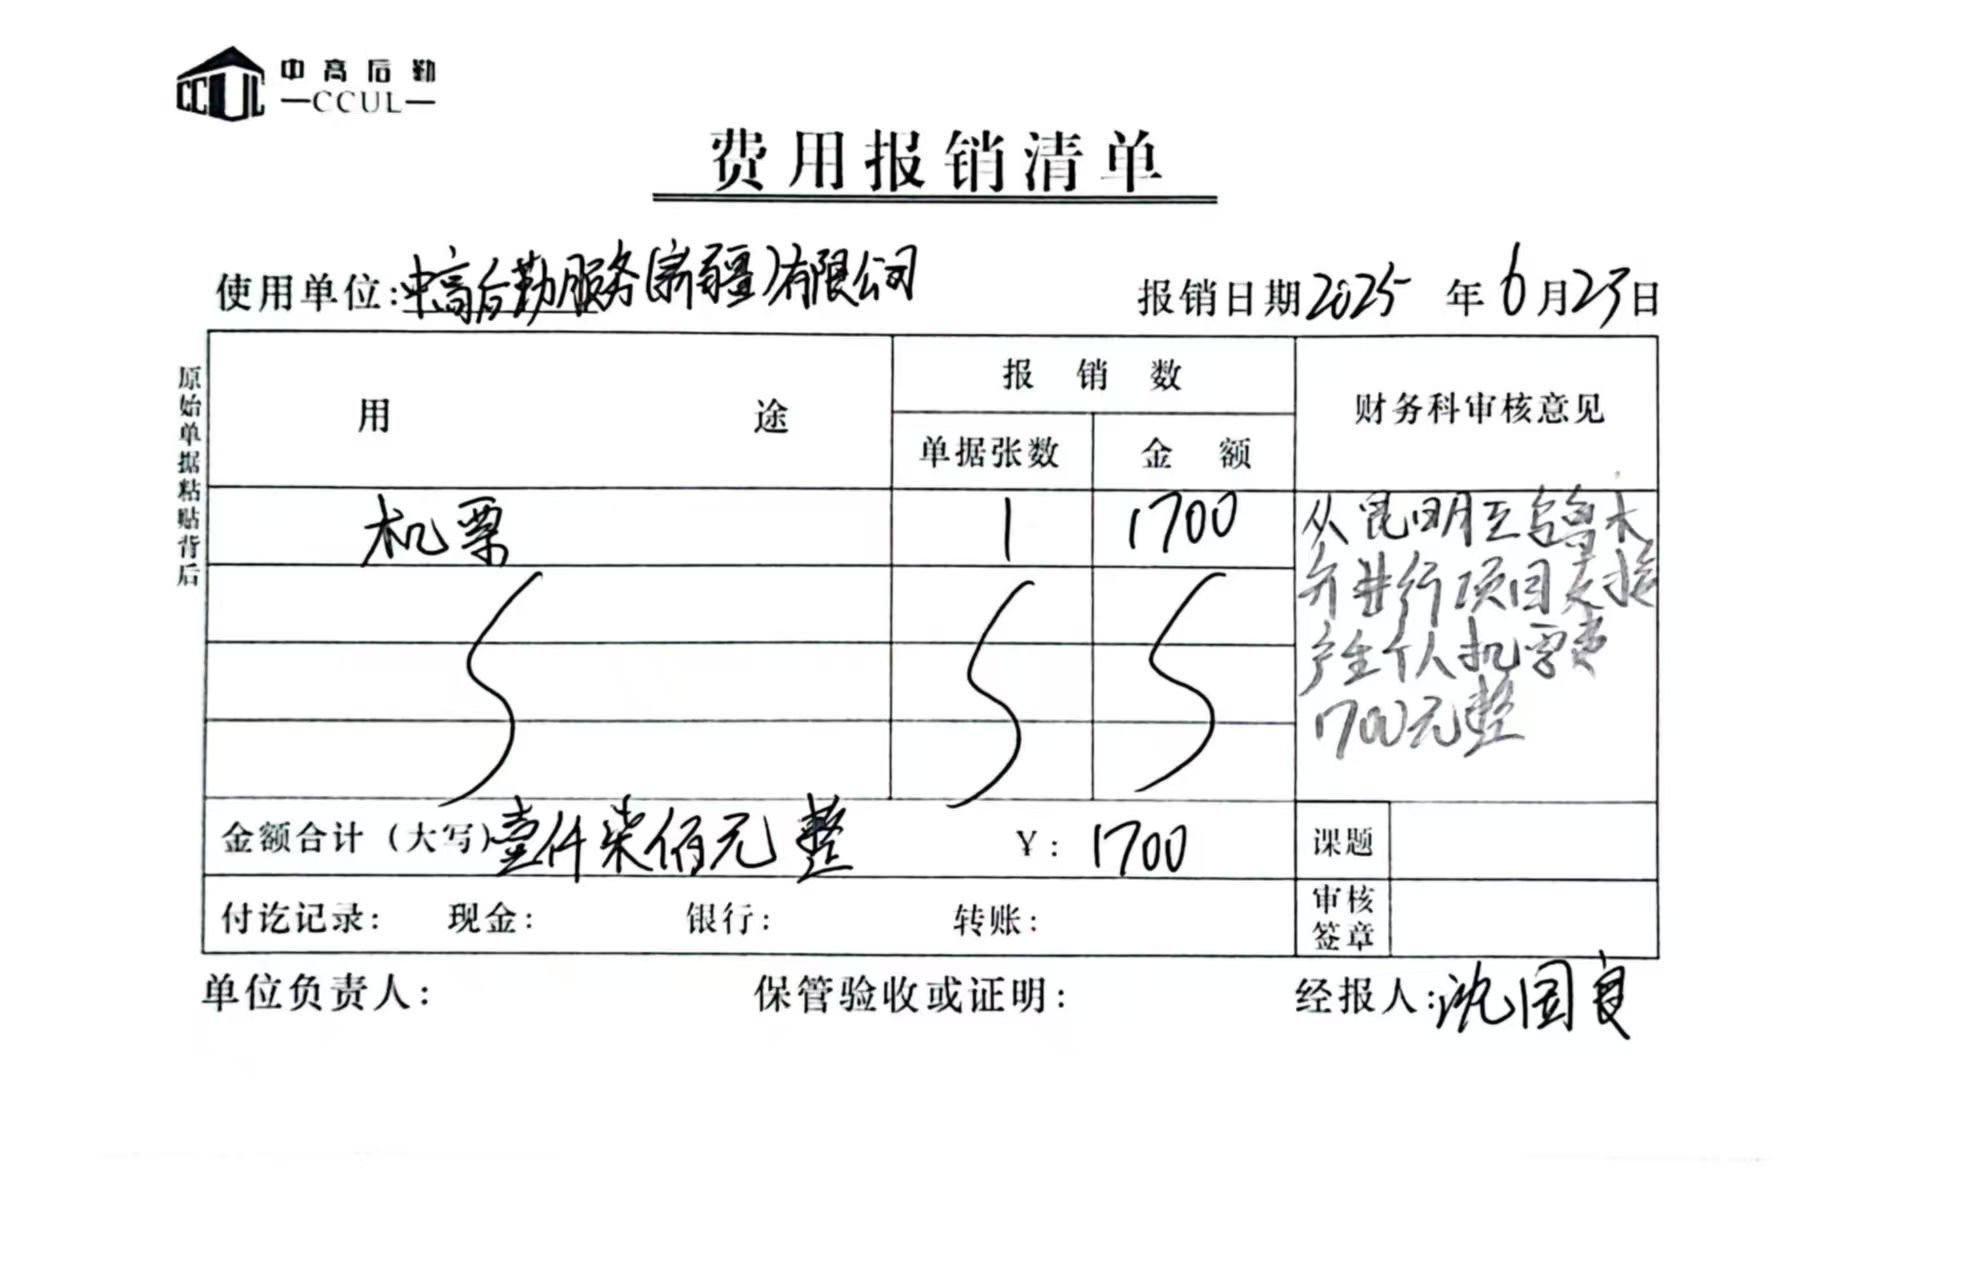 CCUL 中高后勤
—CCUL—
费用报销清单
使用单位:中高后勤服务(新疆)有限公司 报销日期2025年6月23日
原始单据粘贴背后
用途 报销数 财务科审核意见
单据张数 金额
机票 1 1700
从昆明至乌鲁木
齐进行项目支援
产生个人机票费
1700元整
金额合计(大写)壹仟柒佰元整 ¥: 1700 课题
付讫记录: 现金: 银行: 转账: 审核签章
单位负责人: 保管验收或证明: 经报人:沈国良